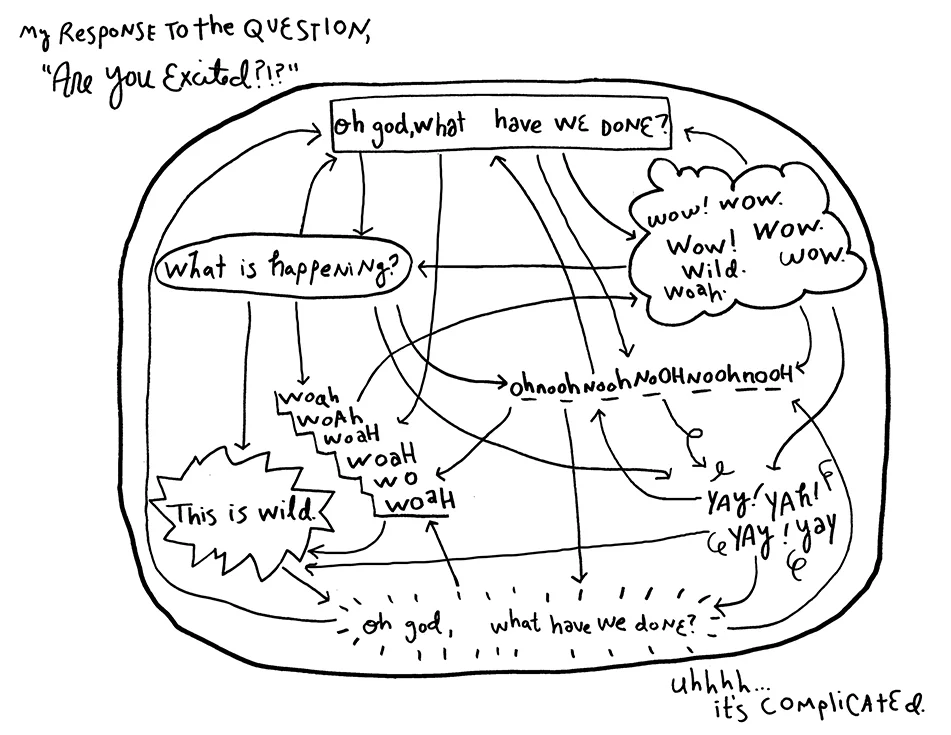 My RESPONSE To the QUESTION,
"Are you Excited?!?"
oh god, what have WE DONE?
wow! wow.
Wow! Wow.
Wild. wow.
woah.
What is happening?
OhnoohNoohNoOHNoohnooH
woah
woAh
woaH
woaH
wo
woaH
This is wild.
YAY! YAh!
YAY! yay
oh god, what have we doNE?
uhhhh...
it's COMPliCATEd.